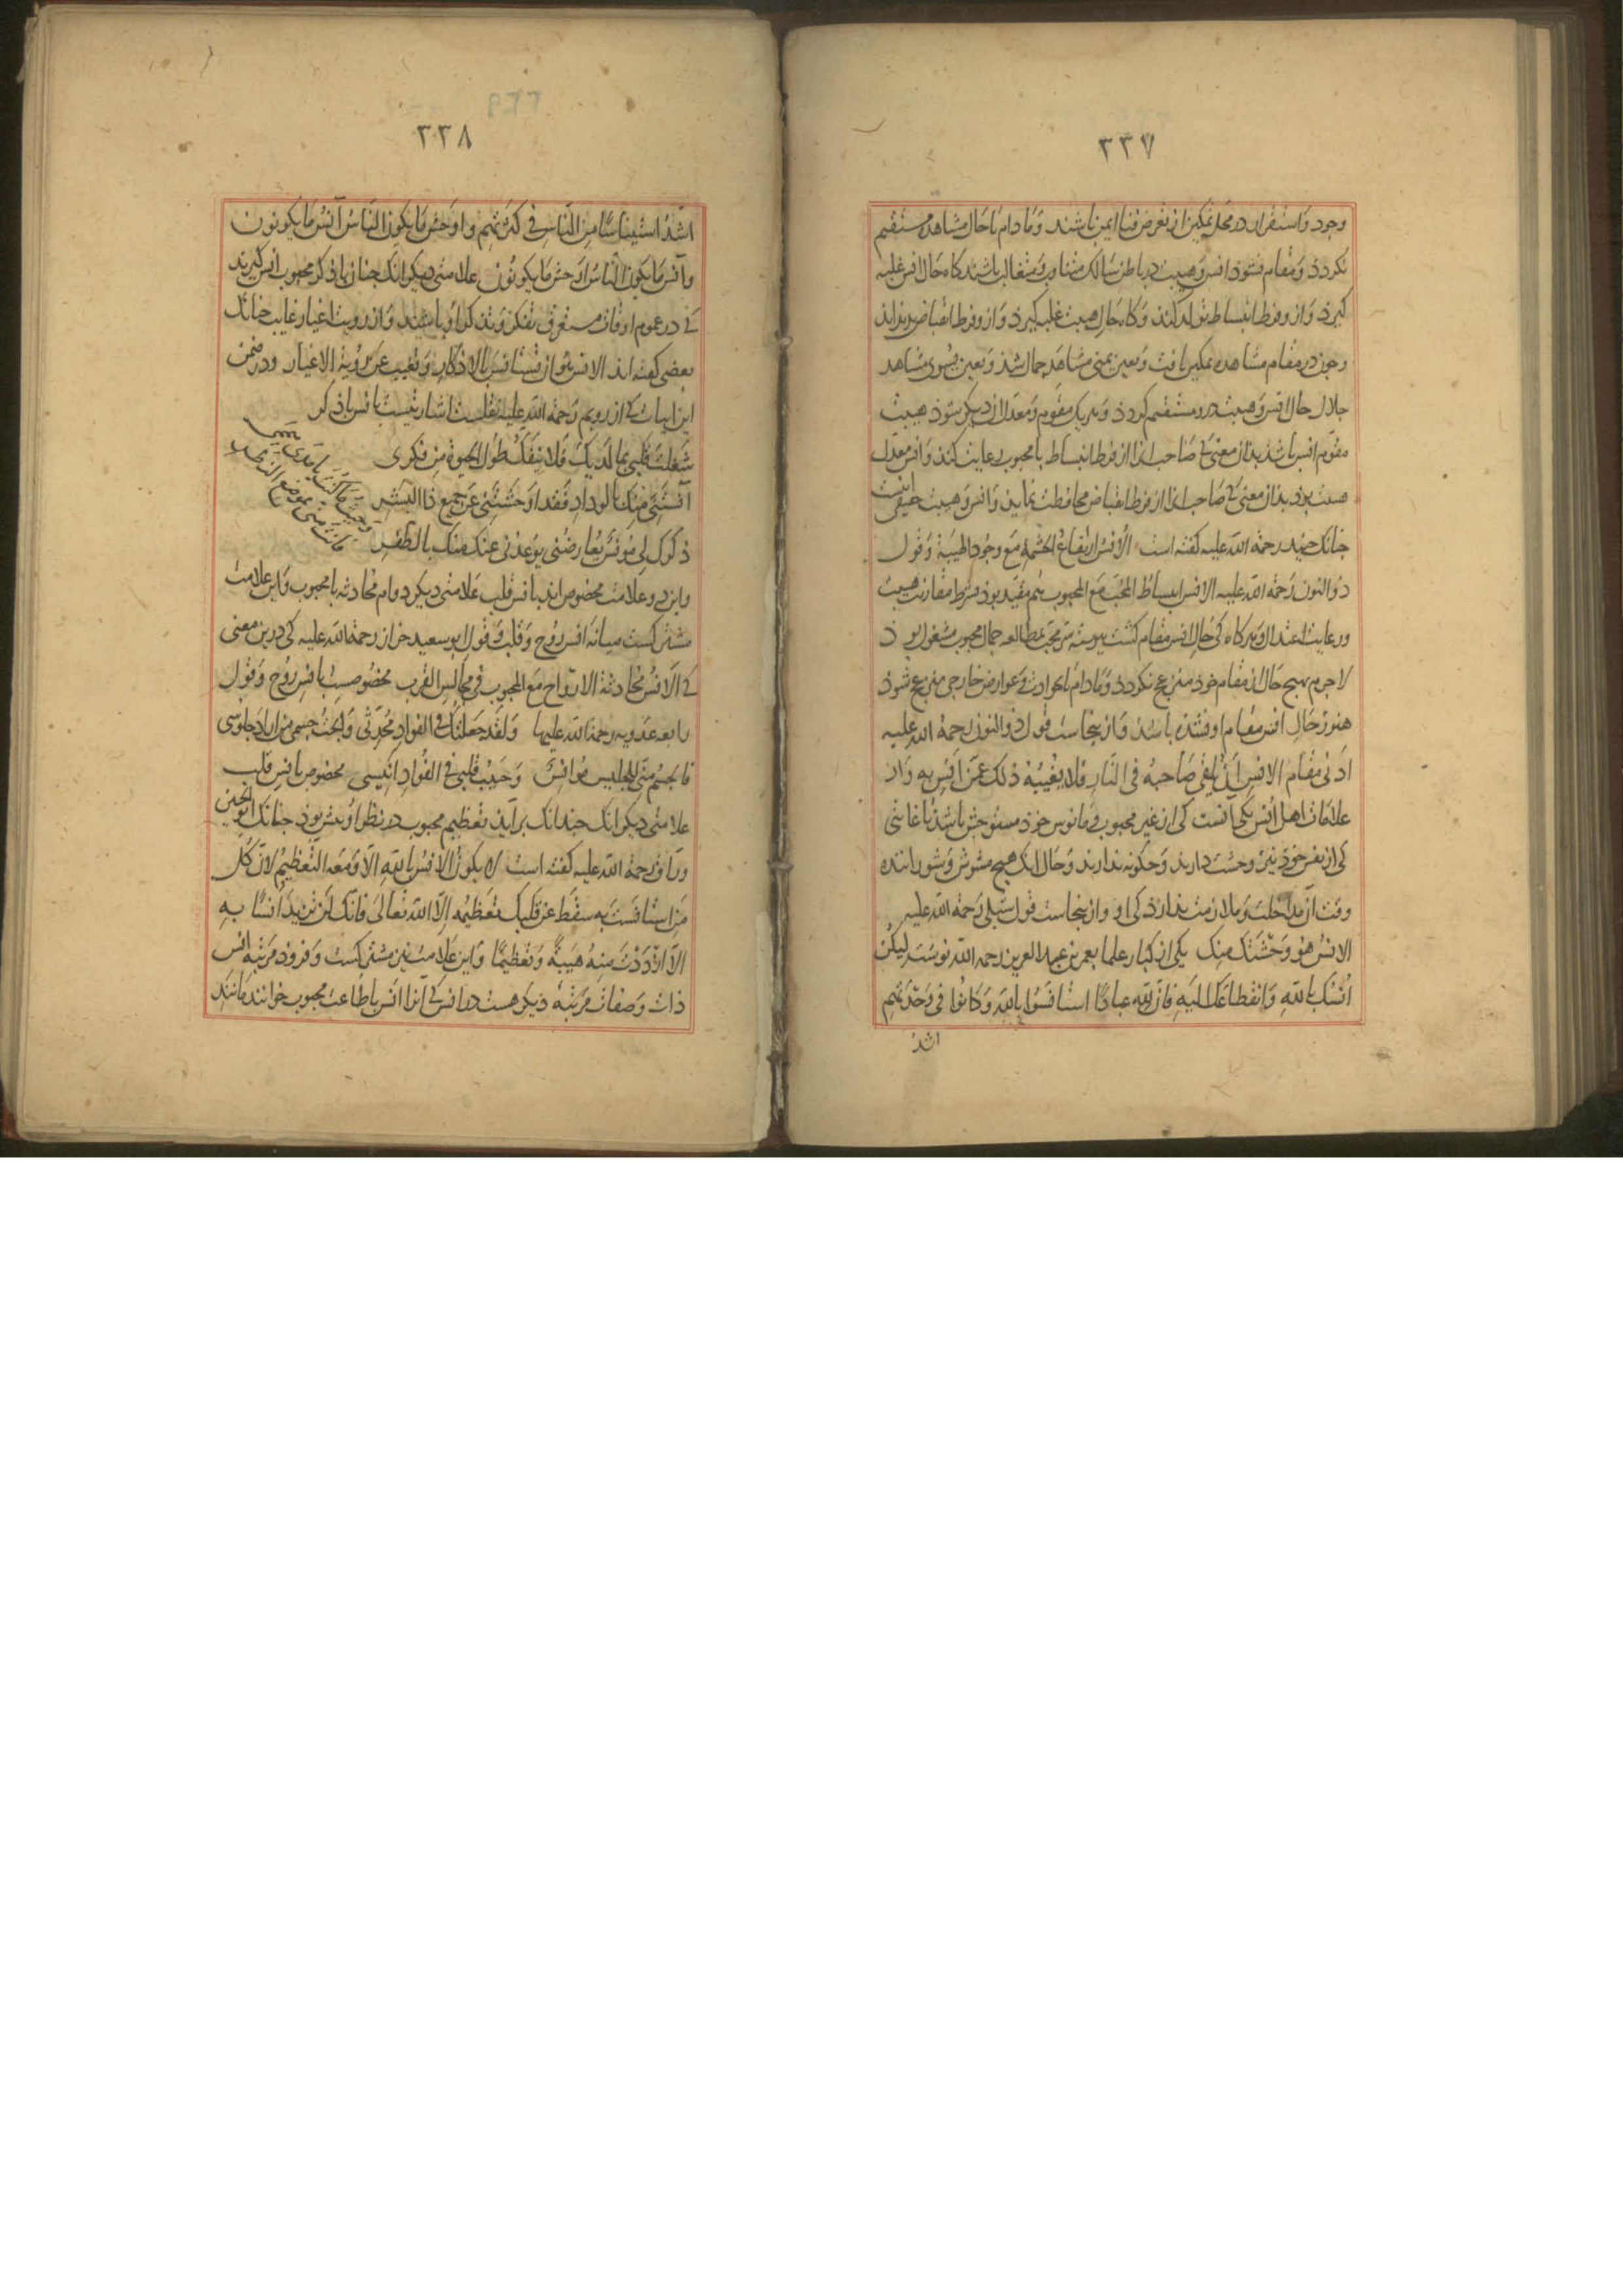 ٣٣٧
وجود و استقرار در محل تمکین از تعرض فنا ایمن باشند و تا دام تا حال مشاهده مستقیم
نکردذ و مقام نشوذ انس و هیبت در باطن سالک متناوب و متغالب باشند کاه حال انس غلبه
کیرذ و از و فرط انبساط تولد کند و کاه حال هیبت غلبه کیرذ و از و فرط انقباض بدید آید
و جون در مقام مشاهده تمکین یافت و بعین یمنی مشاهد جمال شذ و بعین یسری مشاهد
جلال حال انس و هیبت درو مستقیم کردذ و هر یک مقوم و معدل آن دیکر شوذ هیبت
مقوم انس باشذ بدان معنی کی صاحب انرا از فرط انبساط با محبوب رعایت کند و انس معدل
هیبت بوذ بدان معنی کی صاحب انرا از فرط انقباض محافظت نماید و انس و هیبت حقیقی اینست
جنانک جنید رحمة الله علیه کفته است الانس ارتفاع الحشمة مع وجود الهیبة و قول
ذو النون رحمة الله علیه الانس انبساط المحب مع المحبوب هم مقید بوذ بشرط مقارنت هیبت
و رعایت اعتدال و هر کاه کی حال انس مقام کشت پیوسته سر محب بمطالعه جمال محبوب مشغول بوذ
لاجرم بهیج حال از مقام خوذ منزعج نکردد و تا دام تا بحوادث و عوارض خارجی منزعج شوذ
هنوز حال انس مقام او نشده باشذ و از ینجاست قول ذوالنون رحمة الله علیه
ادنی مقام الانس ان یلقی صاحبه فی النار فلا یغیبه ذلک عمن انس به و از
علامات اهل انس یکی آنست کی از غیر محبوب و مانوس خوذ مستوحش باشذ تا غایتی
کی از نفس خوذ نیز وحشت دارند و جکونه ندارند و حال انک هیج مشوش و شوراننده
وقت از مداخلت و ملازمت ندارذ کی او و از ینجاست قول شبلی رحمة الله علیه
الانس هو وحشتک منک یکی از کبار علما بعمر بن عبد العزیز رحمه الله نوشت لیکن
انسک بالله و انقطاعک الیه فان لله عبادا استانسوا بالله و کانوا فی وحدتهم
اشد
٣٣٨
اشد استیناسا من الناس فی کثرتهم و اوحش ما یکون الناس آنس ما یکونون
و آنس ما یکون الناس اوحش ما یکونون علامتی دیکر انک جنان با ذکر محبوب انس کیرند
کی در عموم اوقات مستغرق تفکر و تذکر او باشند و از رویت اغیار غایب جنانک
بعضی کفته اند الانس هو ان تستانس بالاذکار و تغیب عن رؤیة الاغیار و در ضمن
این ابیات کی از رویم رحمة الله علیه نقلست اشارتیست بانس با ذکر
شغلت قلبی بما لدیک فلا ینفک طول الحیوة من فکری
آنستنی منک بالوداد فقد اوحشتنی عن جمیع ذا البشر
ذکرک لی مونس یعارضنی یوعدنی عنک منک بالظفر
و حیث ما کنت یا مدی همی
فانت منی بموضع النظر
و این دو علامت مخصوص اند بانس قلب علامتی دیکر دوام محادثه با محبوب و این علامت
مشترکست میانه انس روح و قلب و قول ابو سعید خراز رحمة الله علیه کی درین معنی
کی الانس محادثة الارواح مع المحبوب فی مجالس القرب مخصوصست بانس روح و قول
رابعه عدویه رحمة الله علیها و لقد جعلتک فی الفواد محدثی و ابحت جسمی من اراد جلوسی
فالجسم منی للجلیس موانس و حبیب قلبی فی الفواد انیسی مخصوص بانس قلب
علامتی دیکر انک جندانک برآید تعظیم محبوب در نظر او بیش بوذ جنانک ابو الحسین
وراق رحمة الله علیه کفته است لا یکون الانس بالله الا و معه التعظیم لان کل
من استانست به سقط عن قلبک تعظیمه الا الله تعالی فانک لن تزید انسا به
الا ازددت منه هیبة و تعظیما و این علامت نیز مشترکست و فروذ مرتبه انس
ذات و صفات مرتبه دیکر هست در انس کی آنرا انس با طاعت محبوب خوانند مانند